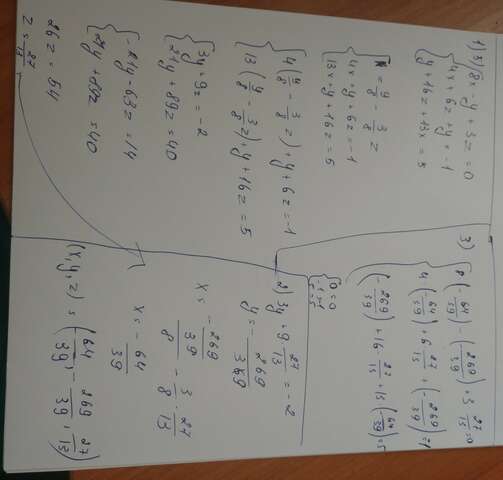 1) 3) { 8x - y + 3z = 0
4x + 6z + y = -1
y + 16z + 13x = 5
{ x = y/8 - 3/8 z
4x + y + 6z = -1
13x + y + 16z = 5
{ 4(y/8 - 3/8 z) + y + 6z = -1
13(y/8 - 3/8 z) + y + 16z = 5
{ 3y + 9z = -2
21y + 89z = 40
{ -21y - 63z = 14
21y + 89z = 40
26z = 54
z = 27/13
2) 3y + 9 · 27/13 = -2
y = - 269/39
x = - 269/39 / 8 - 3/8 · 27/13
x = - 64/39
(x, y, z) = (- 64/39, - 269/39, 27/13)
3)
8(- 64/39) - (- 269/39) + 3 · 27/13 = 0
4(- 64/39) + 6 · 27/13 + (- 269/39) = -1
(- 269/39) + 16 · 27/13 + 13 · (- 64/39) = 5
{ 0 = 0
-1 = -1
5 = 5